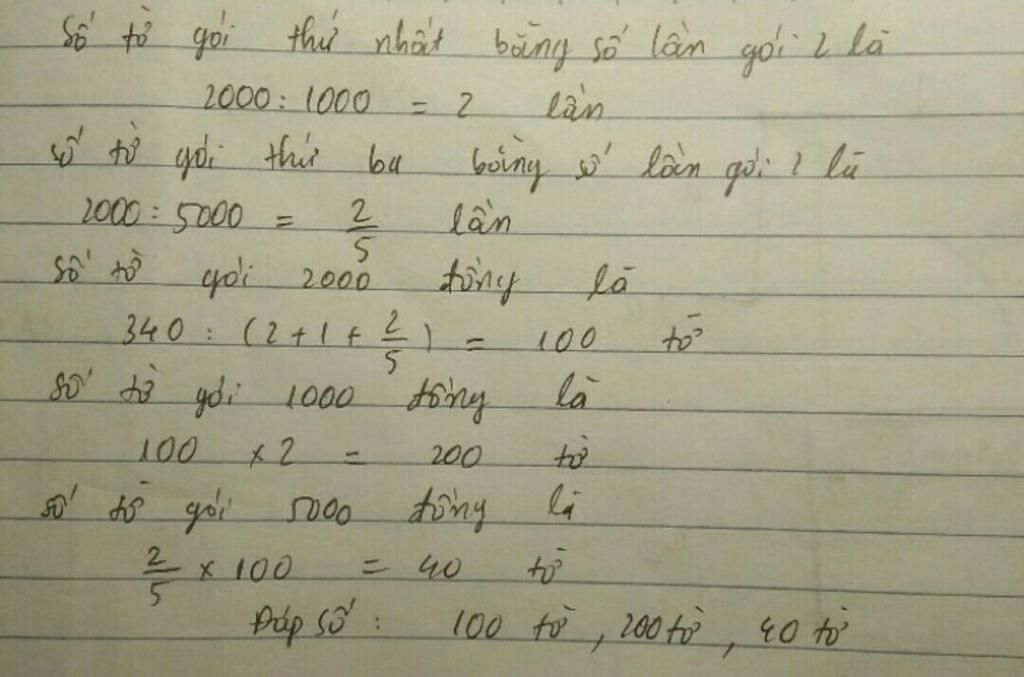 Số tờ gói thứ nhất bằng số lần gói 2 là
2000 : 1000 = 2 lần
số tờ gói thứ ba bằng số lần gói 2 là
2000 : 5000 = 2/5 lần
số tờ gói 2000 đồng là
340 : (2 + 1 + 2/5) = 100 tờ
số tờ gói 1000 đồng là
100 x 2 = 200 tờ
số tờ gói 5000 đồng là
2/5 x 100 = 40 tờ
Đáp số : 100 tờ , 200 tờ , 40 tờ